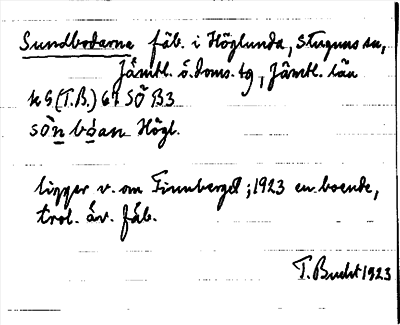 Sundbodarne fäb. i Höglunda, Stuguns sn,
Jämtl. ö. doms. tg, Jämtl. län
kg (T.B.) 67 SÖ B3
sön bòan Högl.
ligger v. om Finnberget; 1923 en boende,
trol. äv. fäb.
T. Bucht 1923